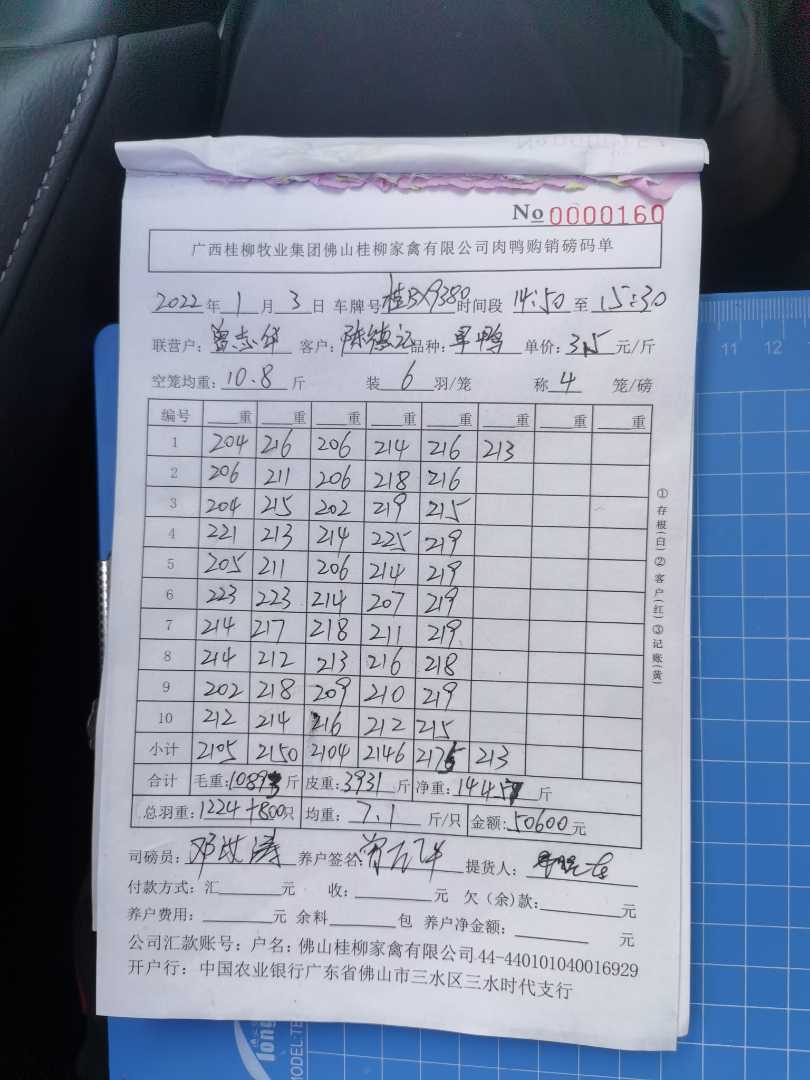 No 0000160
广西桂柳牧业集团佛山桂柳家禽有限公司肉鸭购销磅码单
2022年1月3日 车牌号桂BX9380时间段 14:50至15:30
联营户:曾志华 客户:陈德记 品种:旱鸭 单价:3.5元/斤
空笼均重:10.8斤 装6羽/笼 称4笼/磅
编号 重 重 重 重 重 重 重 重
1 204 216 206 214 216 213
2 206 211 206 218 216
3 204 215 202 219 215
4 221 213 214 225 219
5 205 211 206 214 219
6 223 223 214 207 219
7 214 217 218 211 219
8 214 212 213 216 218
9 202 218 209 210 219
10 212 214 216 212 215
小计 2105 2150 2104 2146 2175 213
合计 毛重:10893斤 皮重:3931斤 净重:斤
总羽重:1224+800只 均重:7.1斤/只 金额:50600元
司磅员: 养户签名: 提货人:
付款方式:汇元 收:元 欠(余)款:元
养户费用:元 余料包 养户净金额:元
公司汇款账号:户名:佛山桂柳家禽有限公司44-440101040016929
开户行:中国农业银行广东省佛山市三水区三水时代支行
①存根(白)②客户(红)③记账(黄)
11 12
long
MODEL:TE